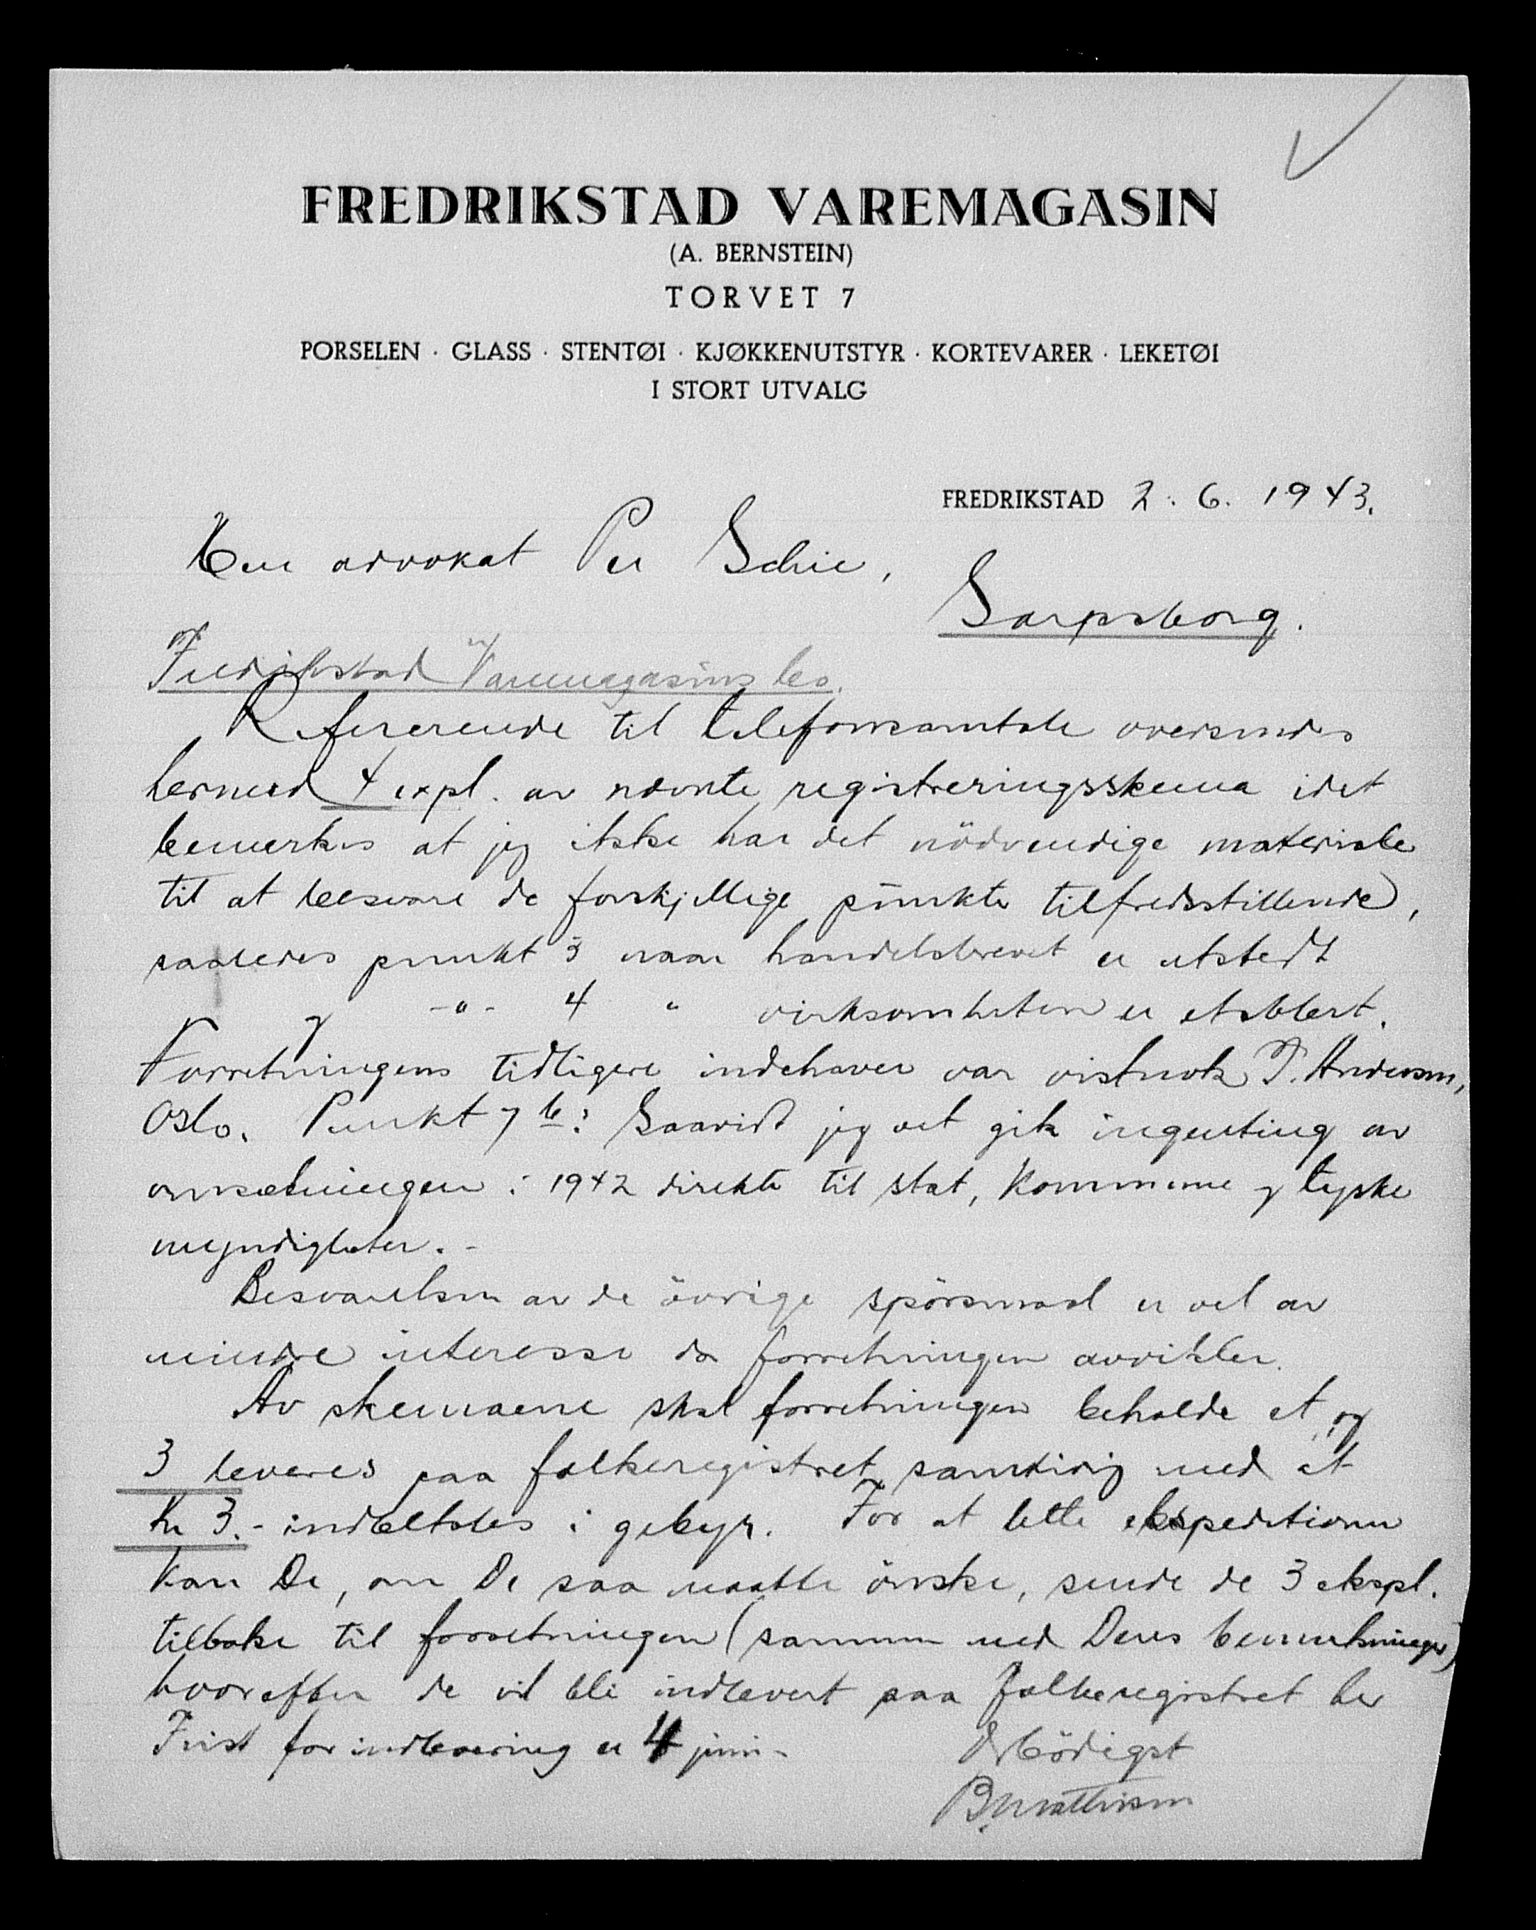 FREDRIKSTAD VAREMAGASIN
(A. BERNSTEIN)
TORVET 7
PORSELEN · GLASS · STENTØI · KJØKKENUTSTYR · KORTEVARER · LEKETØI
I STORT UTVALG
FREDRIKSTAD 2. 6. 1943.
Herr advokat Per Schie,
Sarpsborg.
Fredrikstad Varemagasins bo.
Refererende til telefonsamtale oversendes
hermed 4 expl. av nævnte registreringsskema idet
bemerkes at jeg ikke har det nödvendige materiale
til at besvare de forskjellige punkter tilfredsstillende,
saaledes punkt 3 naar handelsbrevet er utstedt
og -"- 4 " virksomheten er etablert.
Forretningens tidligere indehaver var vistnok P. Andersen,
Oslo. Punkt 7 b: Saavidt jeg vet gik ingenting av
omsætningen i 1942 direkte til stat, kommune og tyske
myndigheter. -
Besvarelsen av de övrige spörsmaal er vel av
mindre interesse da forretningen avvikler.
Av skemaene skal forretningen beholde et, og
3 leveres paa folkeregistret samtidig med at
kr 3.- indbetales i gebyr. For at lette ekspeditionen
kan De, om De saa maatte önske, sende de 3 ekspl.
tilbake til forretningen (sammen med Deres bemerkninger)
hvorefter de vil bli indlevert paa folkeregistret her
Frist for indlevering er 4 juni -
Ærbödigst
B. Mathisen